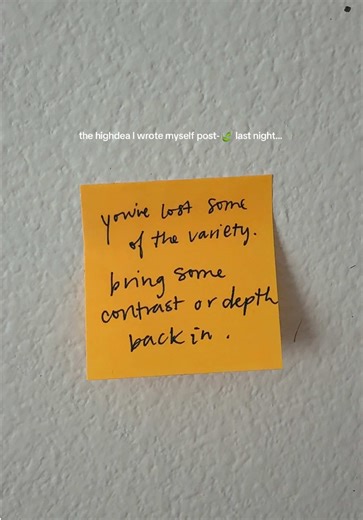 the highdea I wrote myself post-🍃 last night...
you've lost some
of the variety.
bring some
contrast or depth
back in.